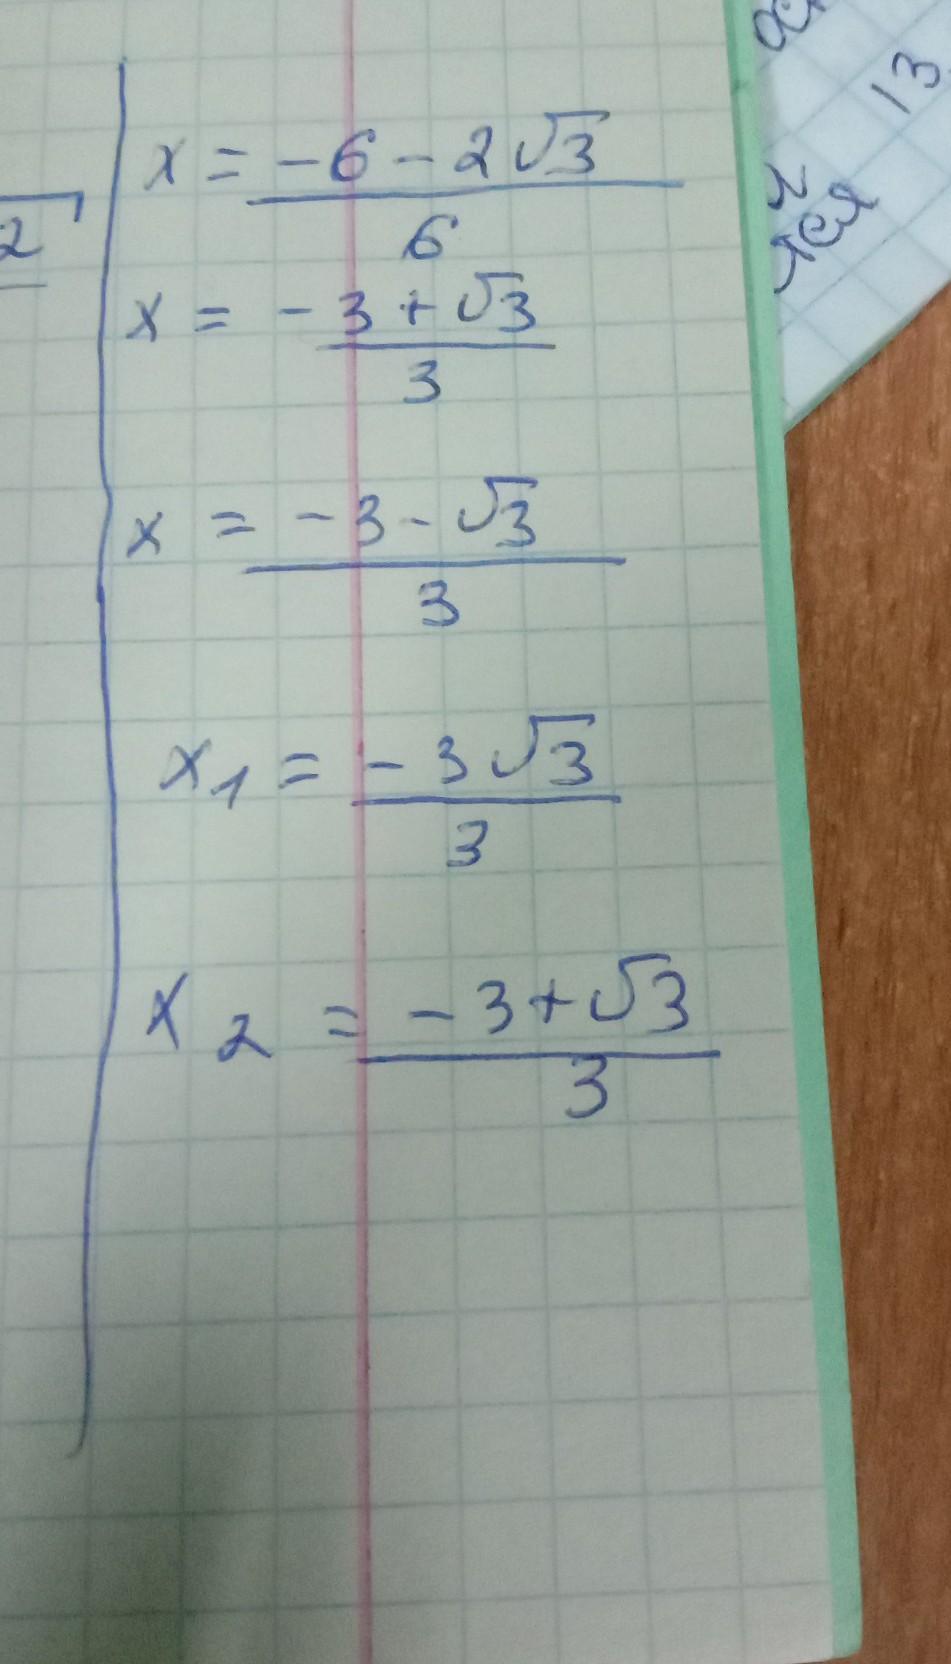 x = -6 - 2√3
6
x = -3 + √3
3
x = -3 - √3
3
x1 = -3√3
3
x2 = -3+√3
3
2
13
тся